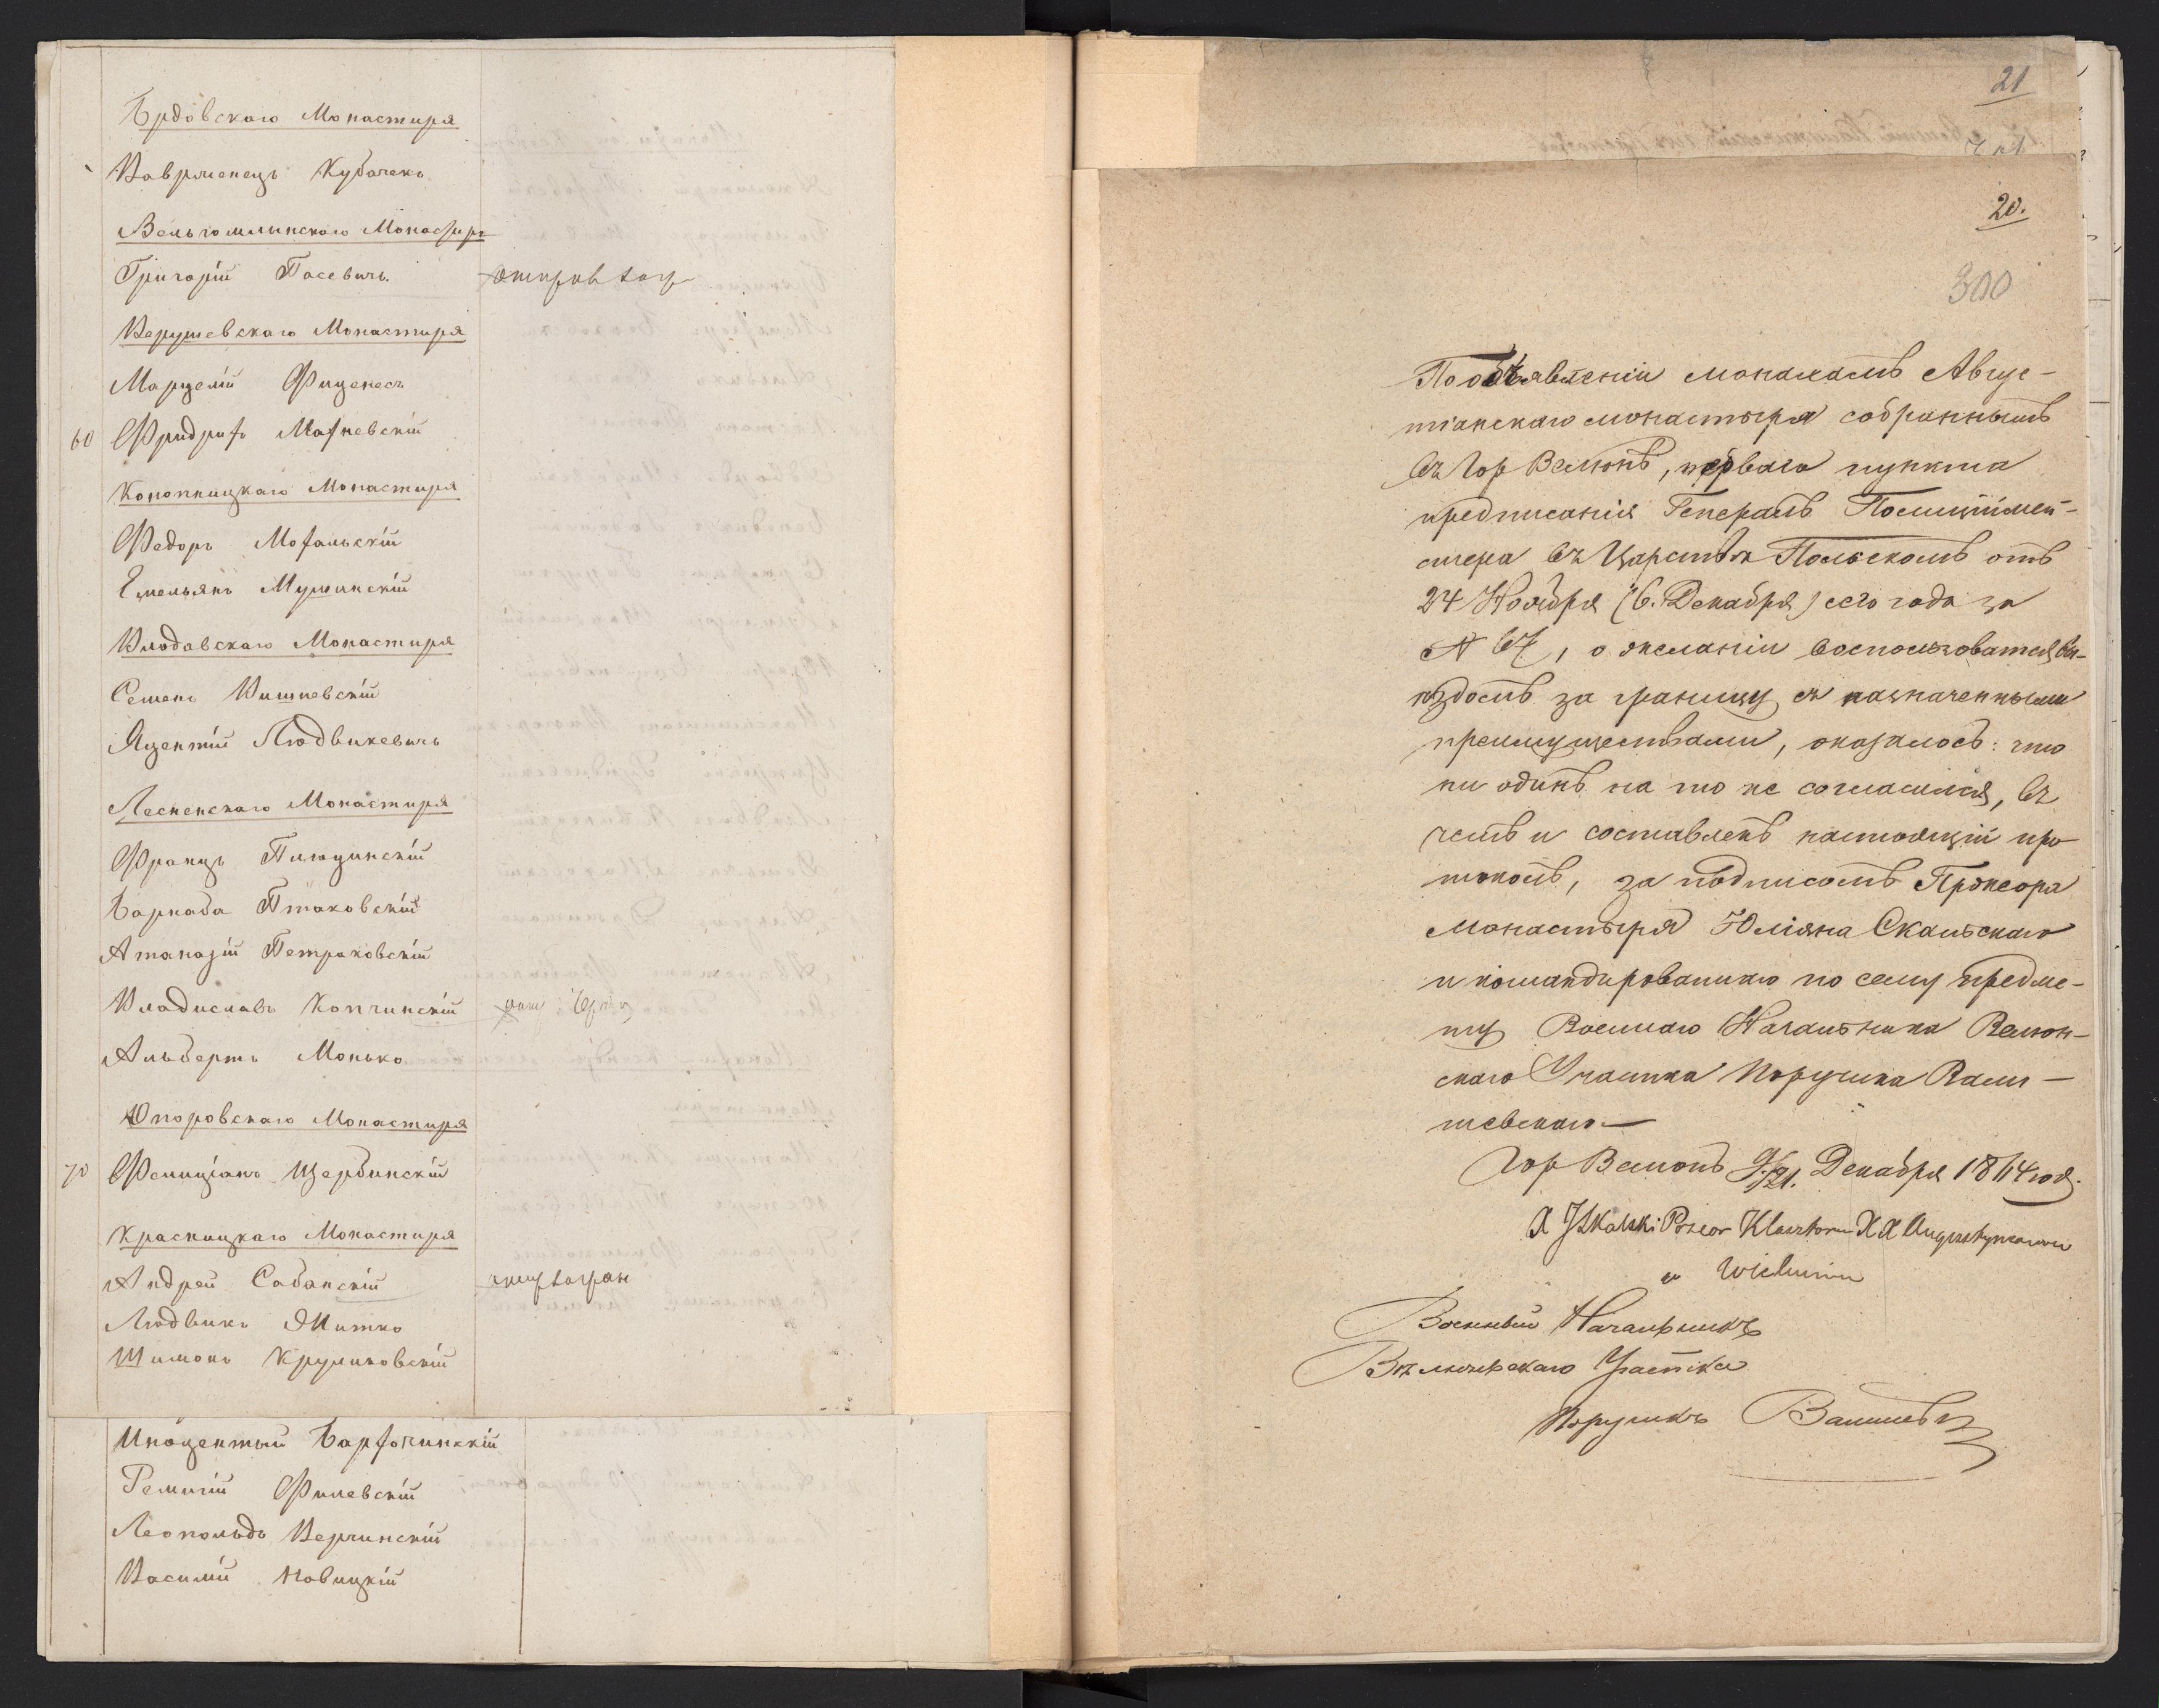 Брдовскаго Монастиря
Вавржинецъ Кубачекъ
Вельгомлинскаго Монастиря
Григорій Пасевичъ.
Верушевскаго Монастиря
Марцелій Фиценесъ
60 Фридрихъ Махневскій
Конопницкаго Монастиря
Федоръ Мохальскій
Емельянъ Мушинскій
Влодавскаго Монастиря
Семенъ Вишневскій
Яцентій Людвикевичъ
Лесненскаго Монастиря
Францъ Плюцинскій
Барнаба Птаковскій
Атаназій Петраковскій
Владиславъ Копчинскій
Альбертъ Монько
Опоровскаго Монастиря
70 Фелиціанъ Щербинскій
Красницкаго Монастиря
Андрей Сабанскій
Людвикъ Житко
Шимонъ Круликовскій
Иноцентый Бархочинскій
Ремигій Филевскій
Леопольдъ Верчинскій
Василій Новицкій
21
20.
300
По объявленіи монахамъ Авгус-
тіанскаго монастыря собраннымъ
въ Гор Велюнѣ, перваго пункта
предписанія Генералъ Полиціймей-
стера въ Царствѣ Польскомъ отъ
24 Ноября (6. Декабря) сего года за
N 67, о желаніи воспользоваться вы-
ѣздомъ за границу съ назначенными
преимуществами, оказалось: что
ни одинъ на то не согласился, въ
чемъ и составленъ настоящій про-
токолъ, за подписомъ Пржеора
Монастыря Юліяна Скальскаго
и командированнаго по сему предме-
ту Военнаго Начальника Велюн-
скаго Участка Поручика Валы-
шевскаго
Гор Велюнь 9/21. Декабря 1864 года.
X J Skalski Przeor Klasztoru XX Augustynianow
w Wieluniu
Военный Начальникъ
Вѣлюньскаго Участка
Поручикъ